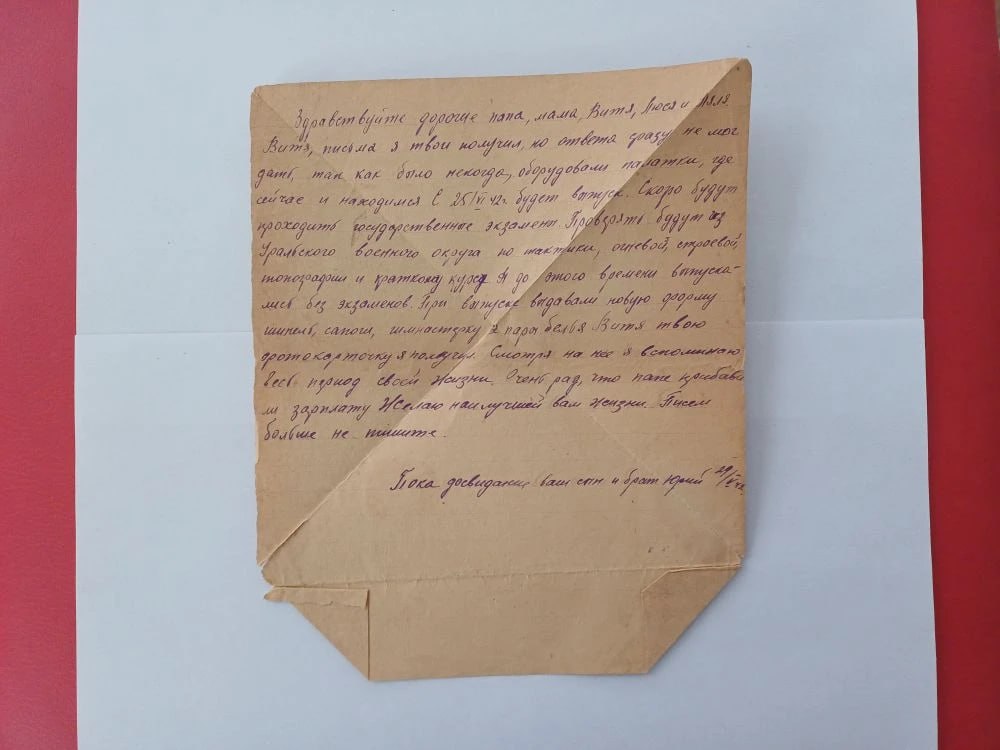 Здравствуйте дорогие папа, мама, Витя, Люся и Ляля
Витя, письма я твои получил, но ответа сразу не мог
дать, так как было некогда, оборудовали палатки, где
сейчас и находимся С 25/VI 42г. будет выпуск. Скоро будут
проходить государственные экзамен. Проверять будут из
Уральского военного округа по тактики, огневой, строевой,
топографии и краткому курсу А до этого времени выпуска-
лись без экзаменов. При выпуске выдавали новую форму
шинель, сапоги, гимнастерку 2 пары белья Витя твою
фотокарточку я получил. Смотря на нее я вспоминаю
весь период своей жизни. Очень рад, что папе прибави
ли зарплату Желаю наилучшей вам жизни. Писем
больше не пишите.
Пока досвидание ваш сын и брат Юрий 29/V 42.